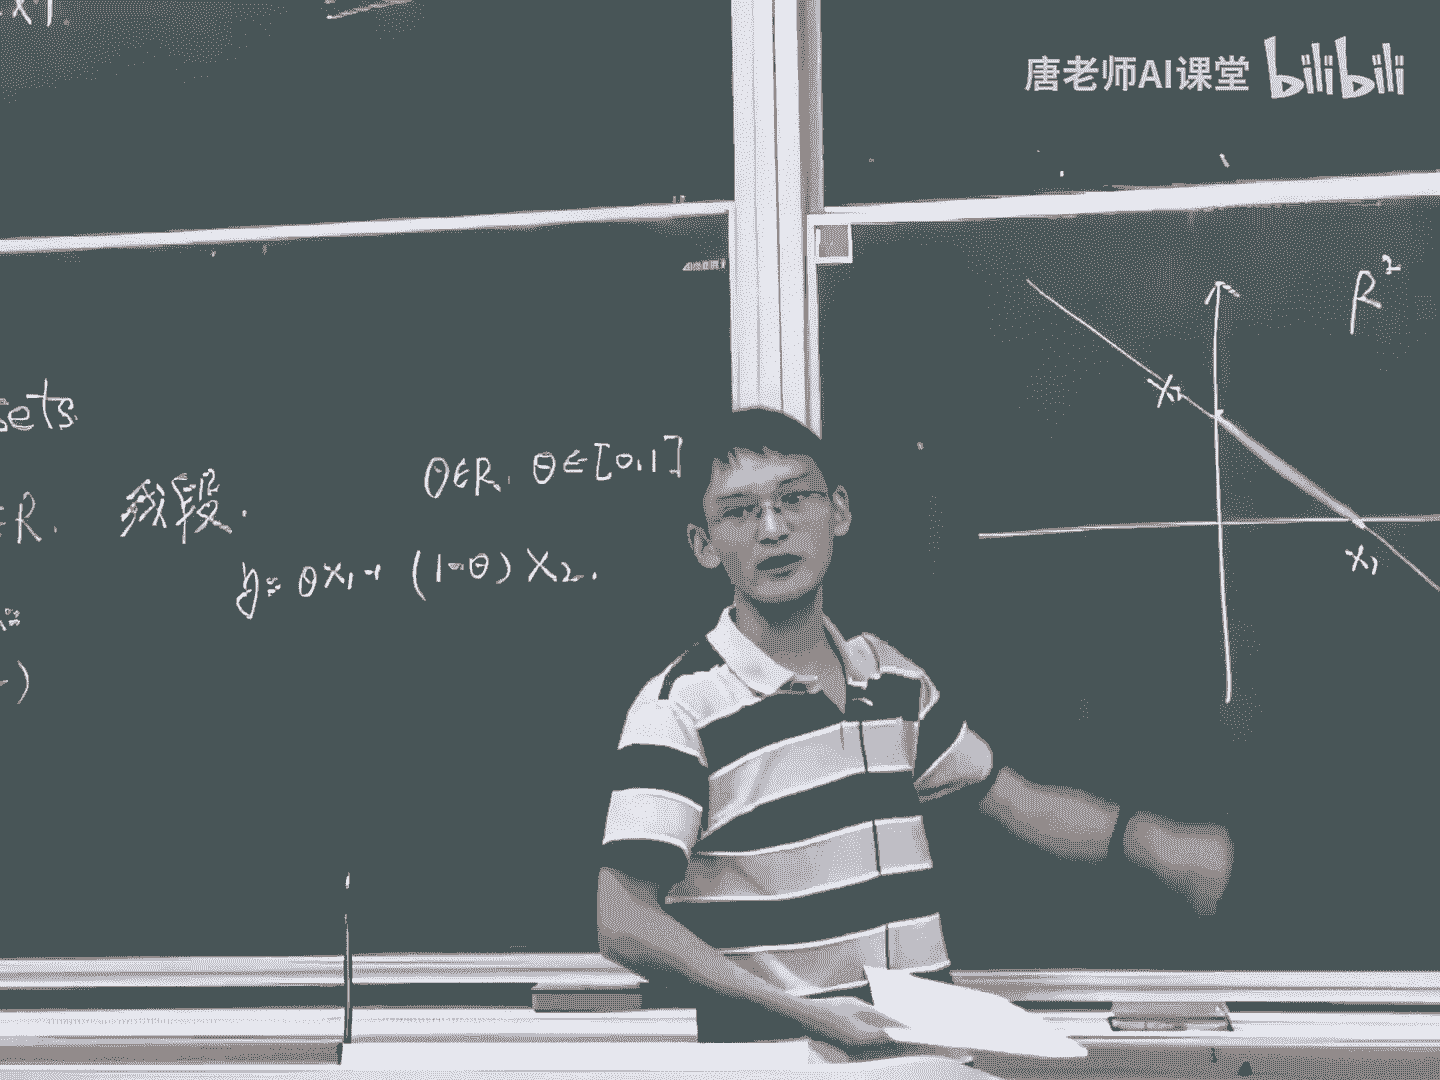 唐老师AI课堂 bilibili
sets
θ∈R, θ∈[0,1]
∈R. 线段.
y = θx₁ + (1-θ) x₂.
R²
x₂
x₁